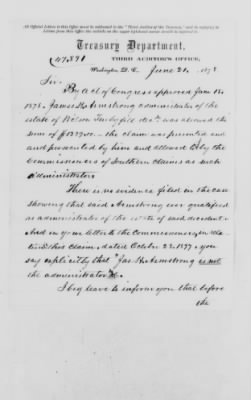 All Official Letters to this Office must be addressed to the "Third Auditor of the Treasury," and in replying to
Letters from this Office the initials on the upper left hand corner should be referred to.
Treasury Department,
THIRD AUDITOR'S OFFICE,
(47,891)
Washington, D. C. June 21, 1878
Sir:
By act of Congress approved June 14
1878, James H. Armstrong administrator of the
estate of Nelson decd was allowed the
sum of the claim was presented and
and presented by him and allowed by the
Commissioners of Southern Claims as such
administrator
There is no evidence filed in the case
showing that said Armstrong ever qualified
as administrator of the estate of said decedent.
And in your letter to the Commissioners, in rela-
tion to this claim, dated October 23, 1877, you
say explicitly that "Jas H. Armstrong is not
the administrator &c.
I beg leave to inform you that before
the